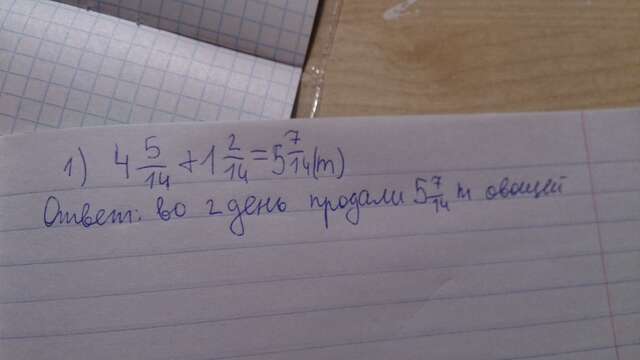 1) 4 5/14 + 1 2/14 = 5 7/14 (т)
Ответ: во 2 день продали 5 7/14 т овощей